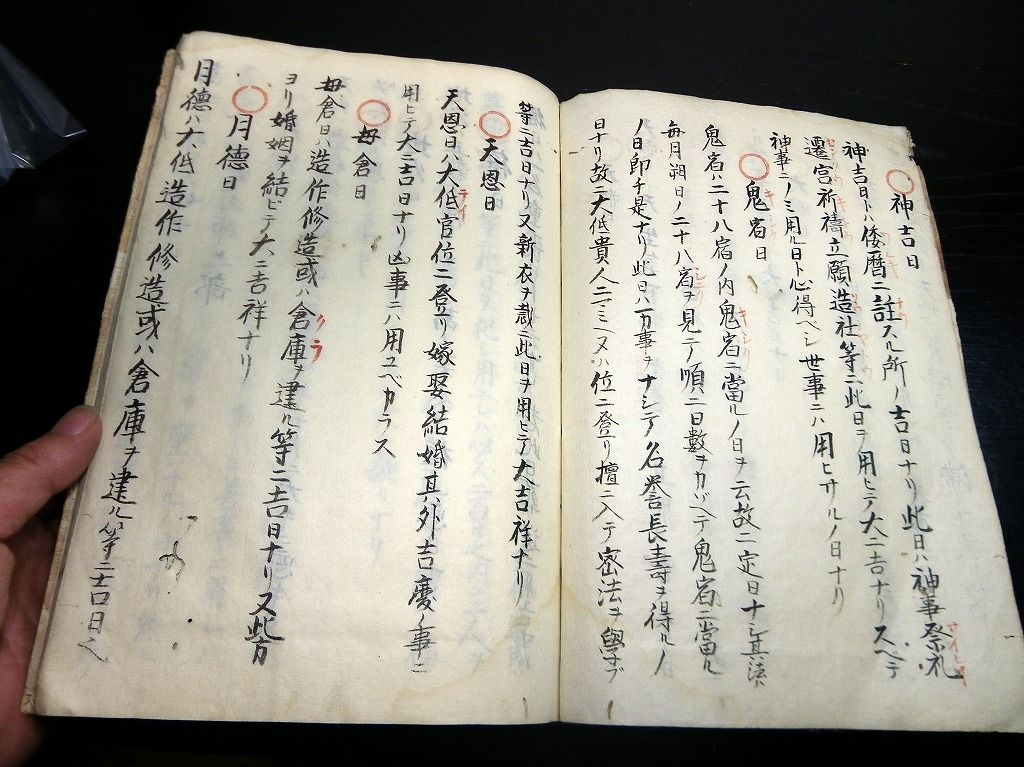 神吉日
神吉日トハ倭暦ニ註スル所ノ吉日ナリ此日ハ神事祭礼
遷宮祈禱立願造社等ニ此日ヲ用ヒテ大ニ吉ナリスヘテ
神事ニノミ用ル日ト心得ベシ世事ニハ用ヒサルノ日ナリ
鬼宿日
鬼宿ハ二十八宿ノ内鬼宿ニ當ルノ日ヲ云故ニ定日ナシ其法ハ
毎月朔日ノ二十八宿ヲ見テ順ニ日数ヲカゾヘテ鬼宿ニ當ル
ノ日即チ是ナリ此日ハ万事ヲナシテ名誉長壽ヲ得ルノ
日ナリ故ニ大低貴人ニマミヘ又ハ位ニ登リ壇ニ入テ密法ヲ學ブ
等ニ吉日ナリ又新衣ヲ裁ニ此日ヲ用ヒテ大吉祥ナリ
天恩日
天恩日ハ大低官位ニ登リ嫁娶結婚其外吉慶ノ事ニ
用ヒテ大ニ吉日ナリ凶事ニハ用ユベカラス
母倉日
母倉日ハ造作修造或ハ倉庫ヲ建ル等ニ吉日ナリ又此方
ヨリ婚姻ヲ結ビテ大ニ吉祥ナリ
月徳日
月徳ハ大低造作修造或ハ倉庫ヲ建ル等ニ吉日